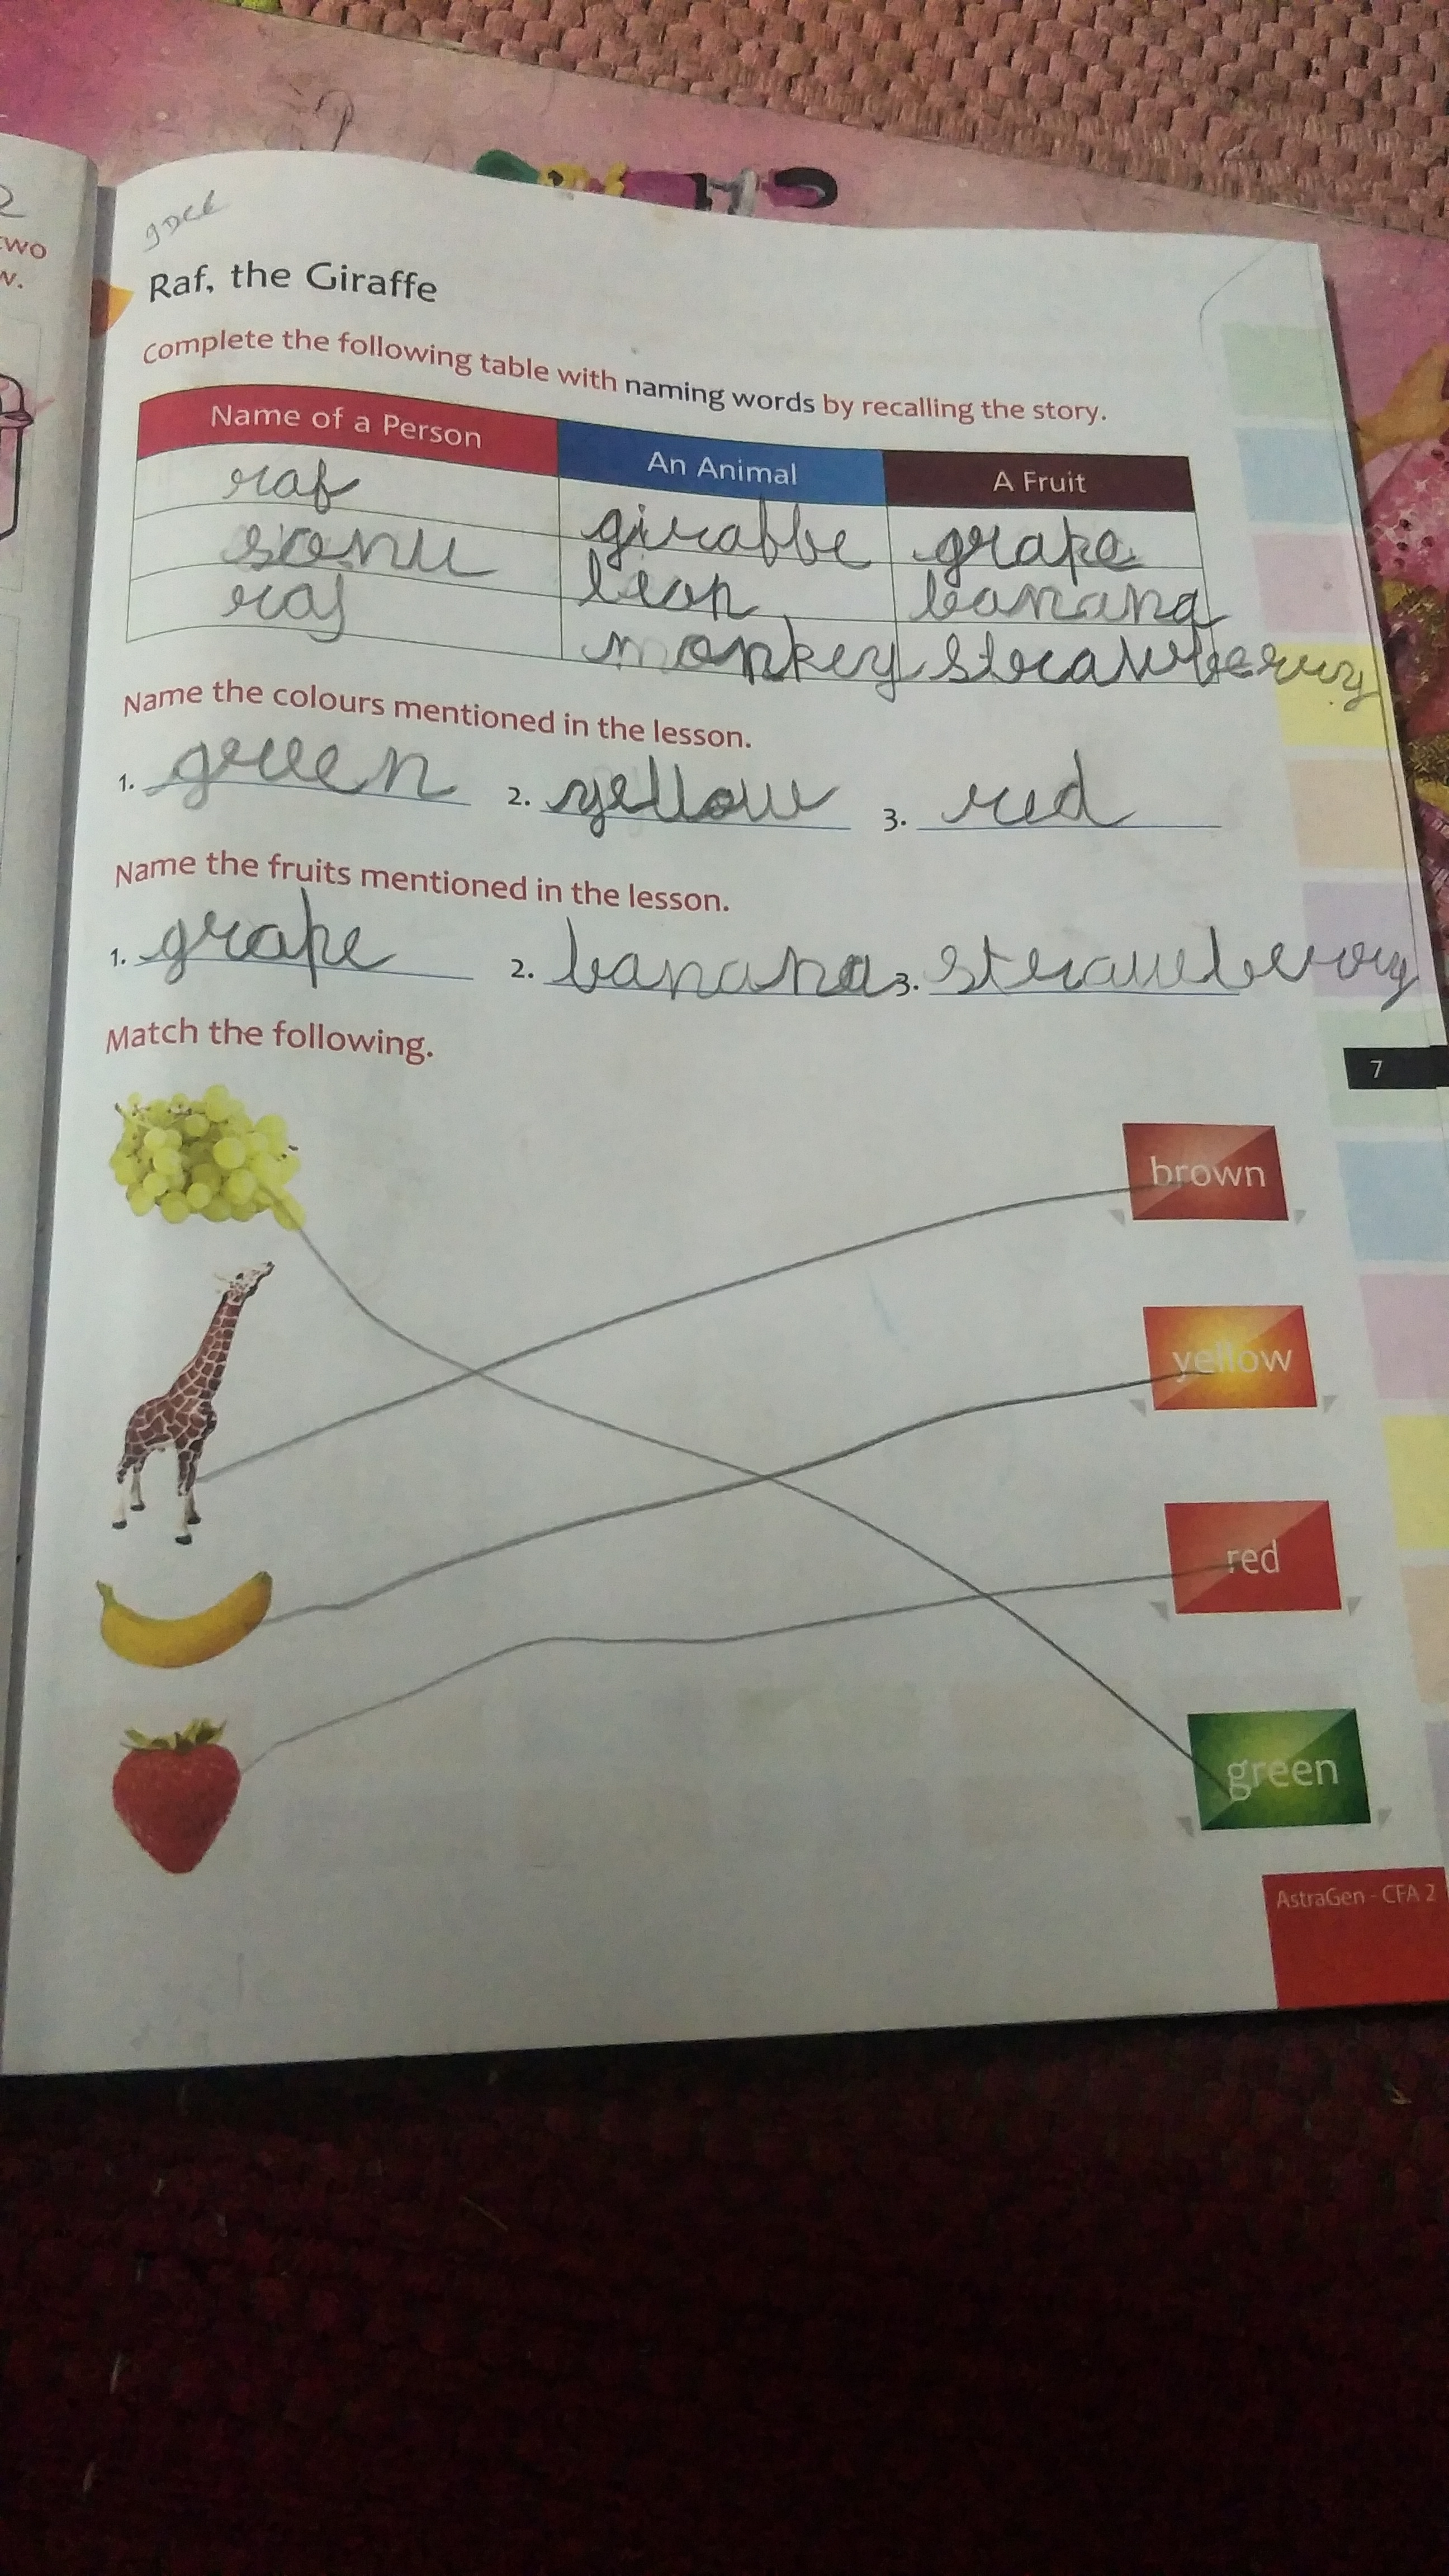 two
w.
Raf, the Giraffe
Complete the following table with naming words by recalling the story.
Name of a Person An Animal A Fruit
raf giraffe grape
sonu lion banana
raj monkey strawberry
Name the colours mentioned in the lesson.
1. green 2. yellow 3. red
Name the fruits mentioned in the lesson.
1. grape 2. banana 3. strawberry
Match the following.
7
brown
yellow
red
green
AstraGen - CFA 2